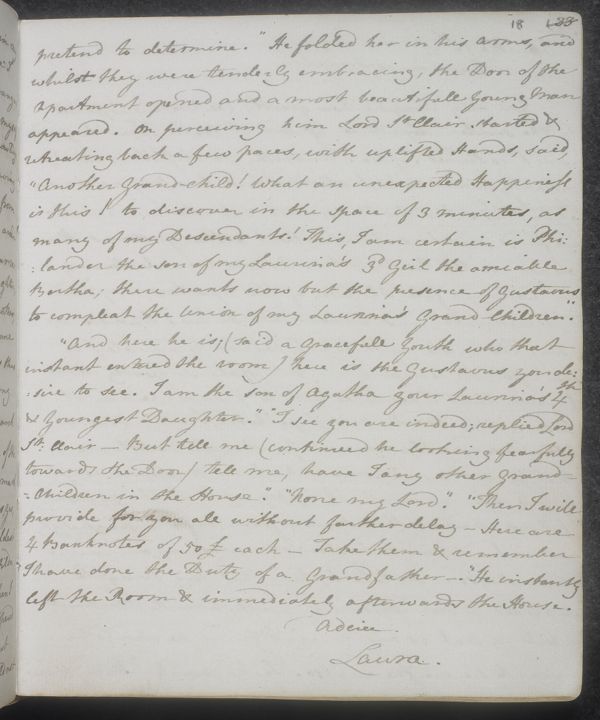 18 133
pretend to determine." He folded her in his arms, and
whilst they were tenderly embracing, the Door of the
Apartment opened and a most beautifull Young Man
appeared. On perceiving him Lord St Clair started &
retreating back a few paces, with uplifted Hands, said,
"Another Grand-child! What an unexpected Happiness
is this! to discover in the space of 3 minutes, as
many of my Descendants! This, I am certain is Phi:
:lander the son of my Laurina's 3d Girl the amiable
Bertha; there wants now but the presence of Gustavus
to compleat the Union of my Laurina's Grand-Children."
"And here he is; (said a Gracefull Youth who that
instant entered the room) here is the Gustavus you de:
:sire to see. I am the son of Agatha your Laurina's 4th
& Youngest Daughter." "I see you are indeed; replied Lord
St. Clair — But tell me (continued he looking fearfully
towards the Door) tell me, have I any other Grand-
:Children in the House." "None my Lord." "Then I will
provide for you all without farther delay — Here are
4 Banknotes of 50£ each — Take them & remember
I have done the Duty of a Grandfather —." He instantly
left the Room & immediately afterwards the House.
Adeiu.
Laura.